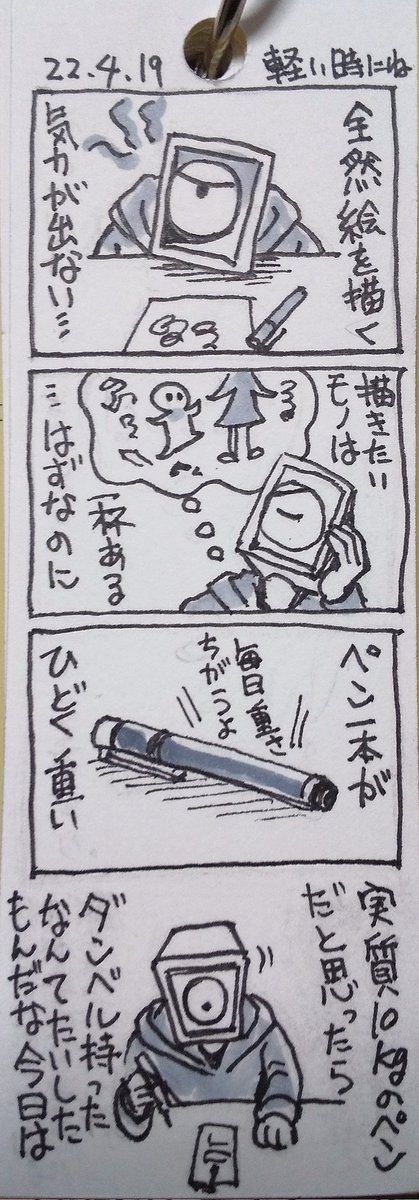 22.4.19
軽い時にね
全然絵を描く
気力が出ない…
描きたい
モノは
一杯ある
…はずなのに
ペン一本が
毎日重さ
ちがうよ
ひどく重い
実質10kgのペン
だと思ったら
ダンベル持った
なんてたいした
もんだな今日は